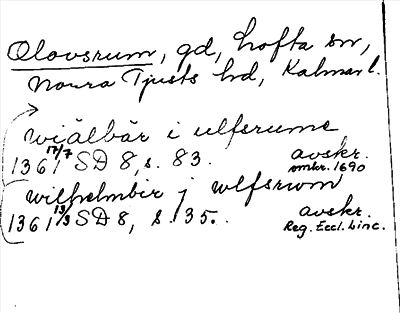 Olovsrum, gd, Lofta sn,
Norra Tjusts hd, Kalmar l.
wiälbär i ulfsrume
1361 17/7 SD 8, s. 83. avskr.
omkr. 1690
wilhelmbir j wlfsrwm
1361 13/3 SD 8, s. 35. avskr.
Reg. Eccl. Linc.